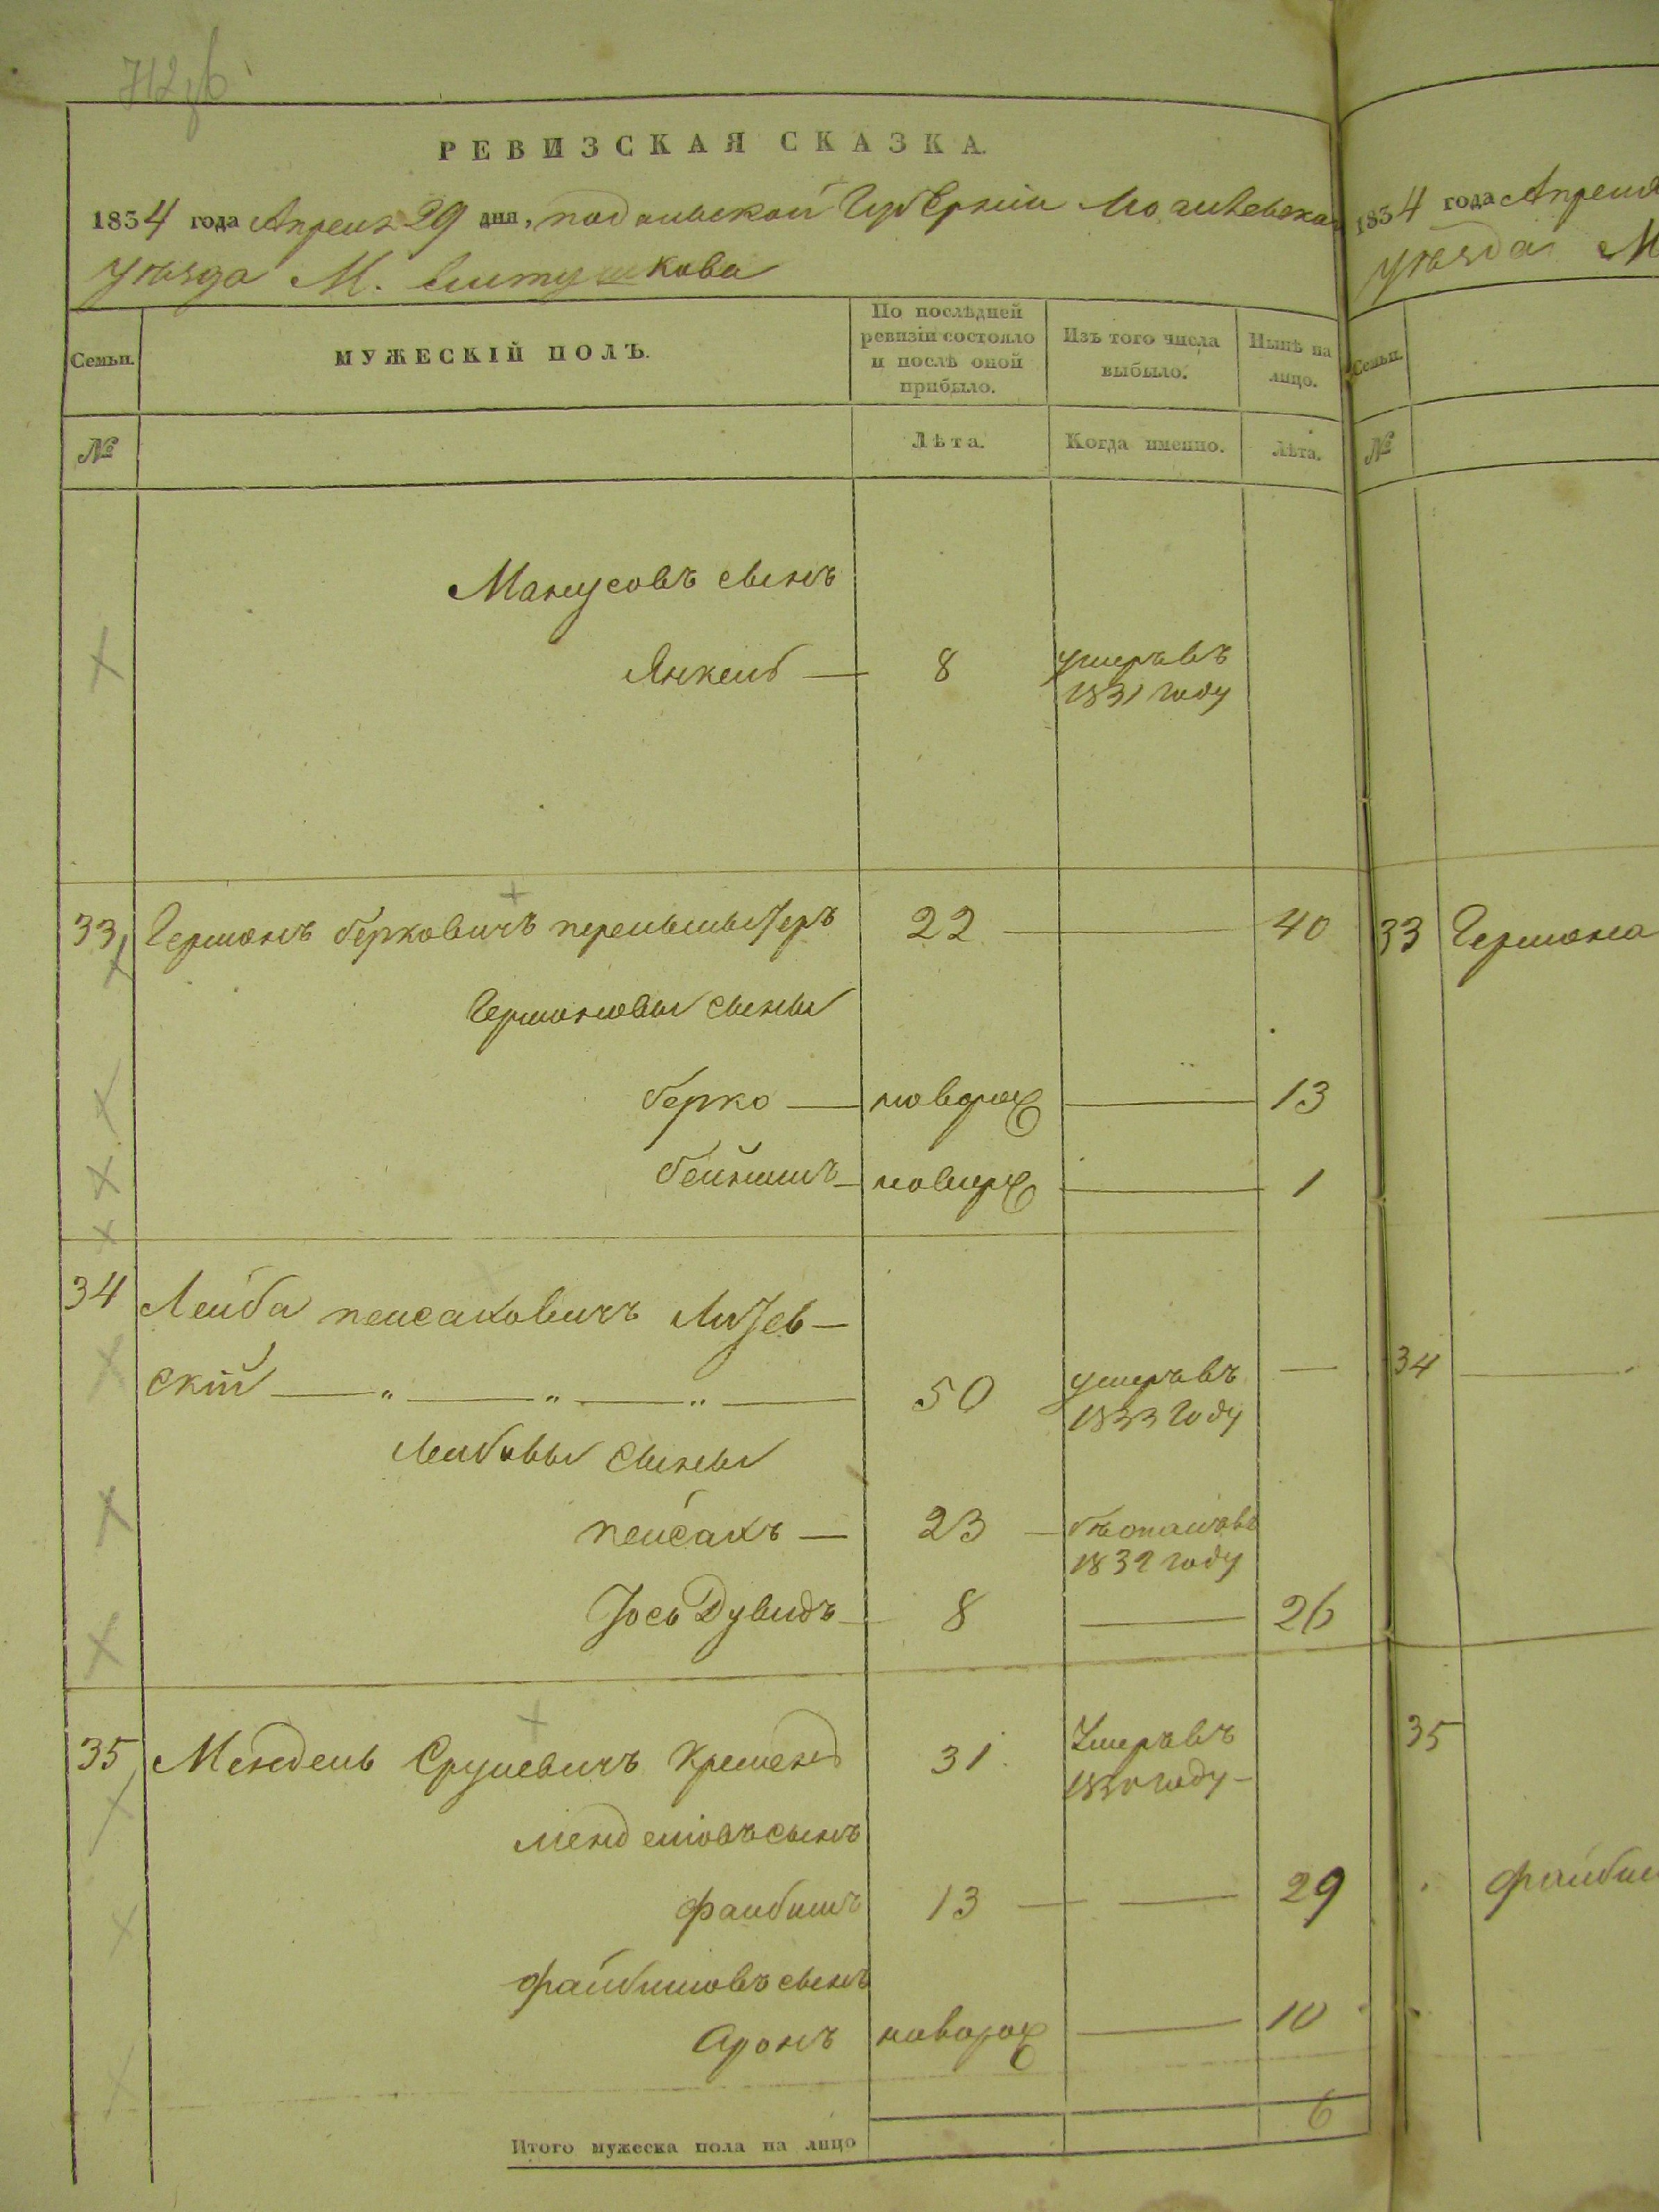 712
РЕВИЗСКАЯ СКАЗКА.
1834 года Апреля 29 дня, подольской Губерніи Могилевскаго
уѣзда М.
Семьи.
МУЖЕСКІЙ ПОЛЪ.
По послѣдней ревизіи состояло и послѣ оной прибыло.
Изъ того числа выбыло.
Нынѣ на лицо.
№
Лѣта.
Когда именно.
Лѣта.
Манусовъ сынъ
Янкель — 8 умеръ въ
1831 году
33 Германъ берковичъ 22 — 40
Германовы сыны
берко — новорож — 13
бейнишъ — новорож — 1
34 Лейба пейсаховичъ
скій — „ — „ — „ — 50 умеръ въ —
1833 году
Лейбовы сыны
пейсахъ — 23 —
1832 году
Іось Дувидъ — 8 — 26
35 Мендель Срулевичъ 31 Умеръ въ
1830 году —
менделювъ сынъ
файбишъ 13 — — 29
файбишовъ сынъ
Аронъ новорож — 10
Итого мужеска пола на лицо 6
1834 года Апреля
уѣзда М
Семьи.
№
33 Германа
34 —
35
файбиш